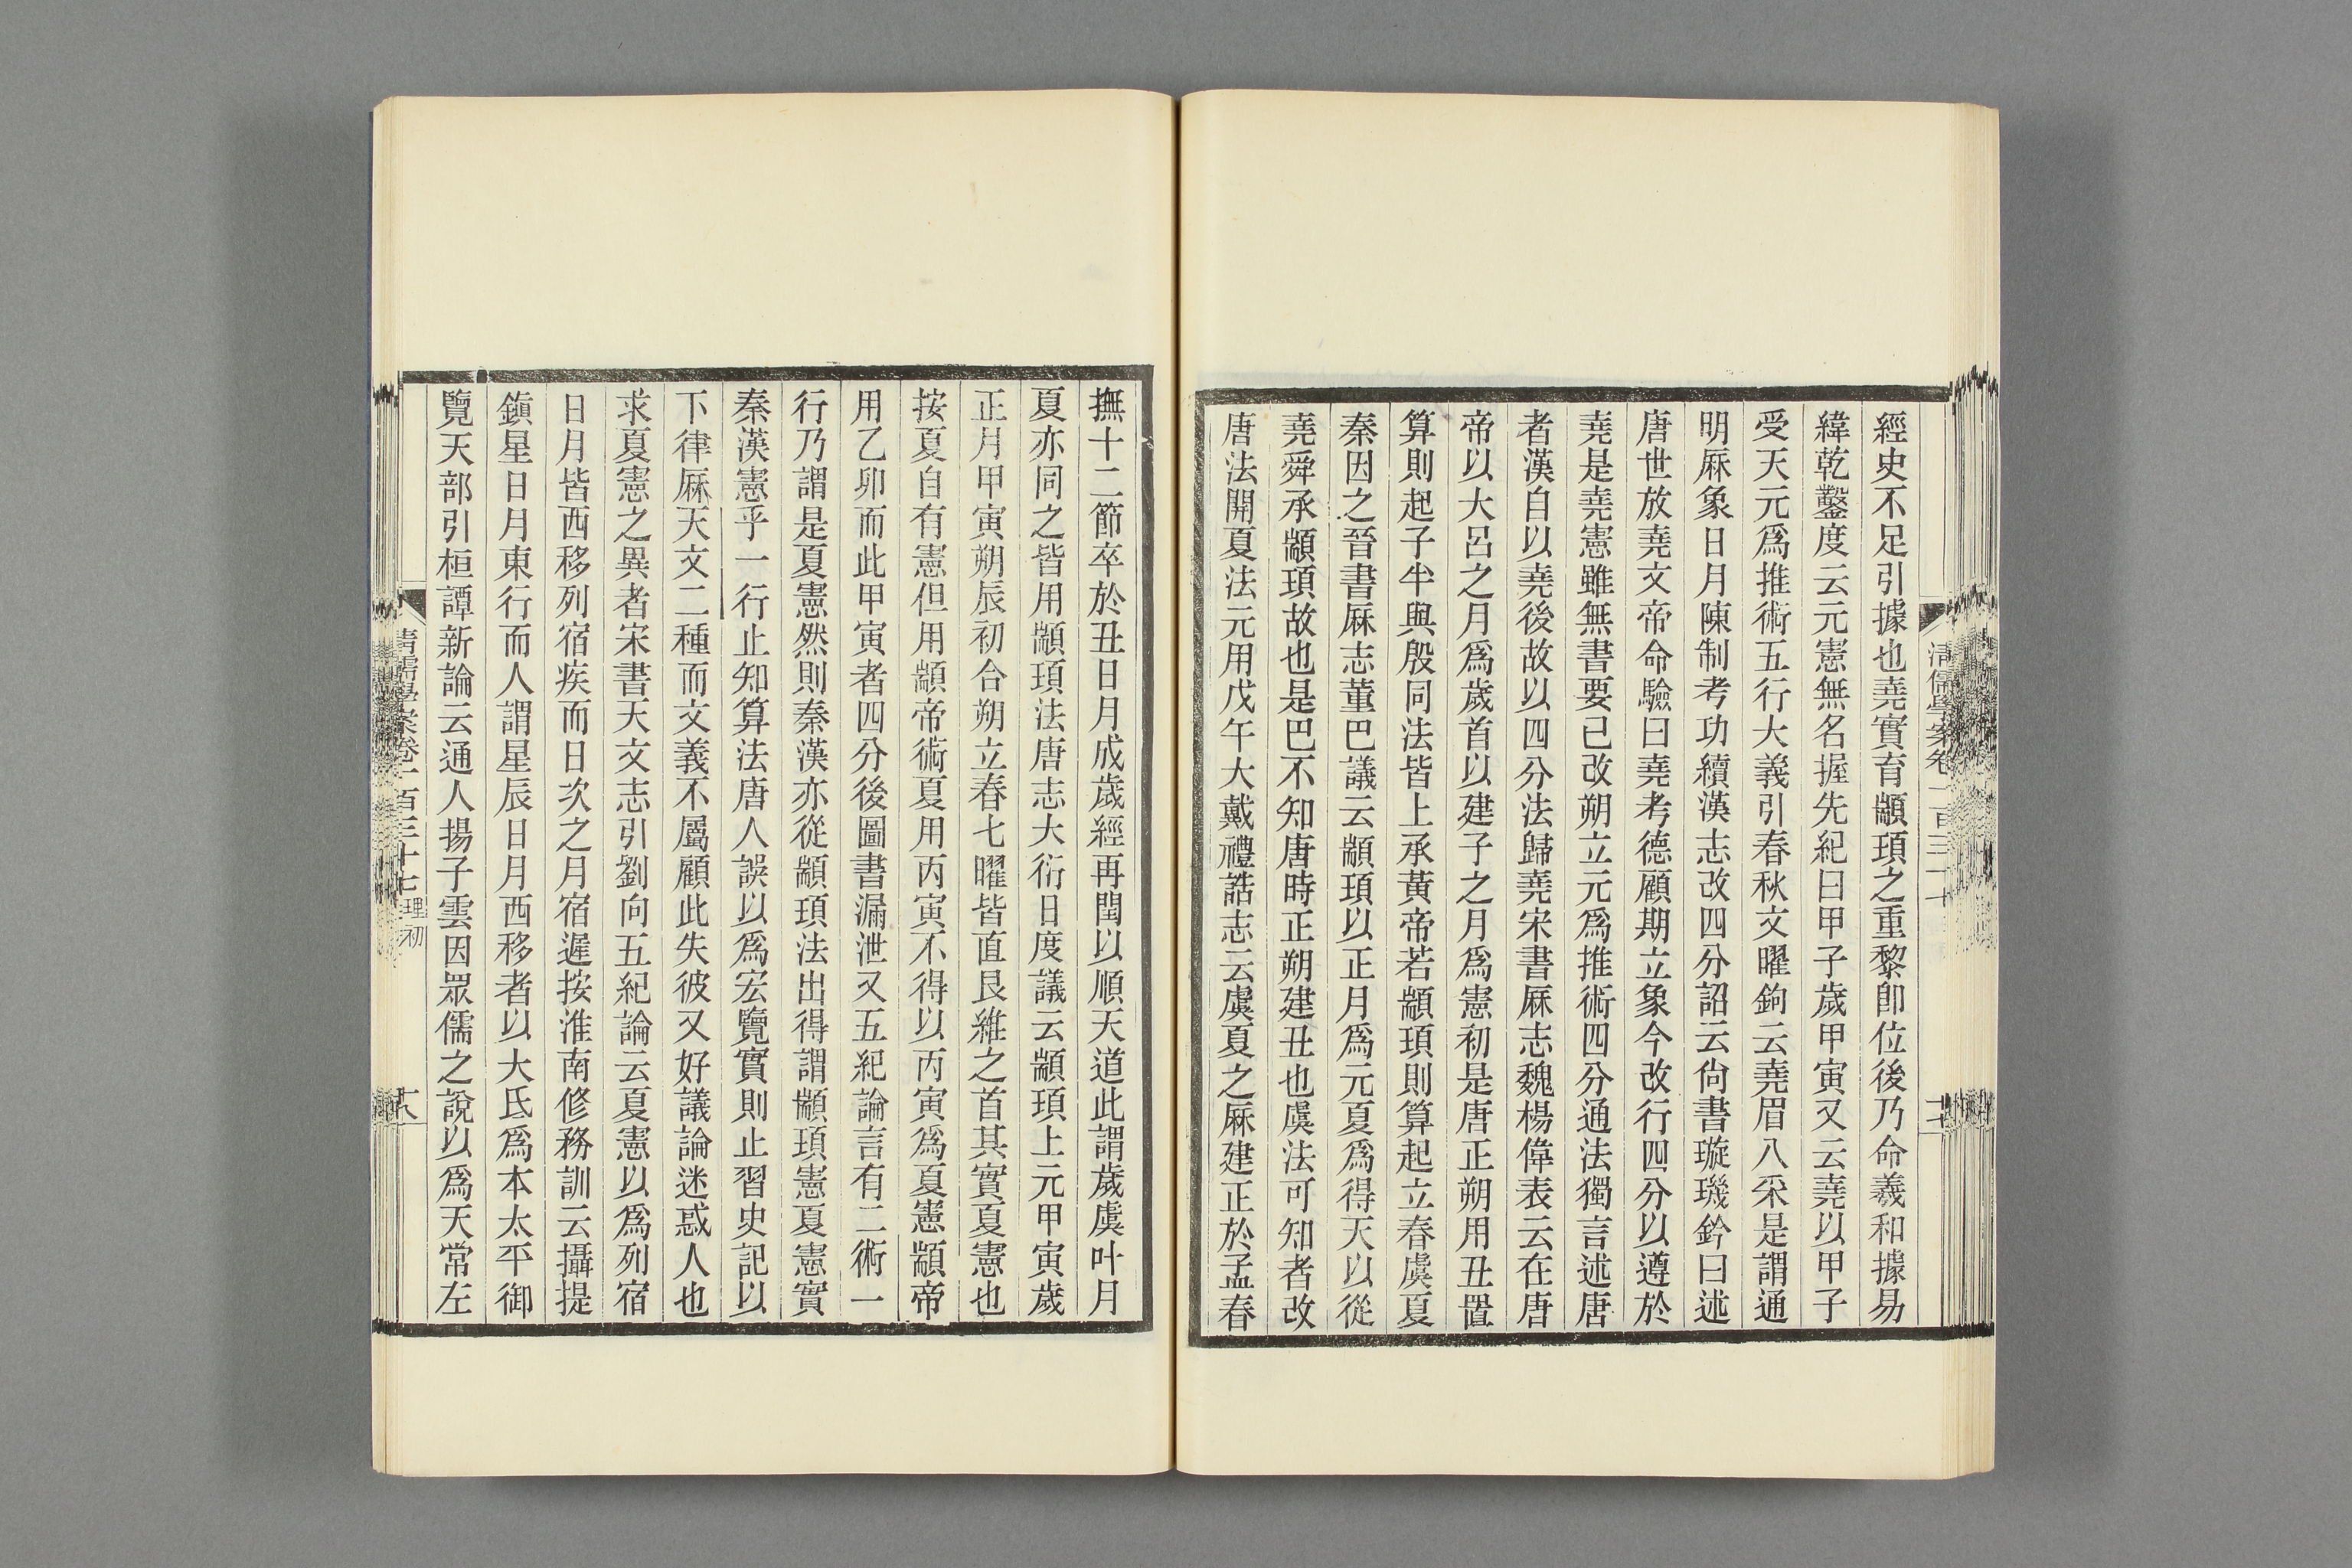 經史不足引據也堯實育顓頊之重黎卽位後乃命羲和據易
緯乾鑿度云元憲無名握先紀曰甲子歲甲寅又云堯以甲子
受天元爲推術五行大義引春秋文曜鉤云堯眉八采是謂通
明厤象日月陳制考功續漢志改四分詔云尙書璇璣鈐曰述
唐世放堯文帝命驗曰堯考德顧期立象今改行四分以遵於
堯是堯憲雖無書要已改朔立元爲推術四分通法獨言述唐
者漢自以堯後故以四分法歸堯宋書厤志魏楊偉表云在唐
帝以大呂之月爲歲首以建子之月爲憲初是唐正朔用丑置
算則起子半與殷同法皆上承黃帝若顓頊則算起立春虞夏
秦因之晉書厤志董巴議云顓頊以正月爲元夏爲得天以從
堯舜承顓頊故也是巴不知唐時正朔建丑也虞法可知者改
唐法開夏法元用戊午大戴禮誥志云虞夏之厤建正於孟春
撫十二節卒於丑日月成歲經再閏以順天道此謂歲虞叶月
夏亦同之皆用顓頊法唐志大衍日度議云顓頊上元甲寅歲
正月甲寅朔辰初合朔立春七曜皆直艮維之首其實夏憲也
按夏自有憲但用顓帝術夏用丙寅不得以丙寅爲夏憲顓帝
用乙卯而此甲寅者四分後圖書漏泄又五紀論言有二術一
行乃謂是夏憲然則秦漢亦從顓頊法出得謂顓頊憲夏憲實
秦漢憲乎一行止知算法唐人誤以爲宏覽實則止習史記以
下律厤天文二種而文義不屬顧此失彼又好議論迷惑人也
求夏憲之異者宋書天文志引劉向五紀論云夏憲以爲列宿
日月皆西移列宿疾而日次之月宿遲按淮南修務訓云攝提
鎭星日月東行而人謂星辰日月西移者以大氐爲本太平御
覽天部引桓譚新論云通人揚子雲因眾儒之說以爲天常左
清儒學案卷一百三十七 理初
十八